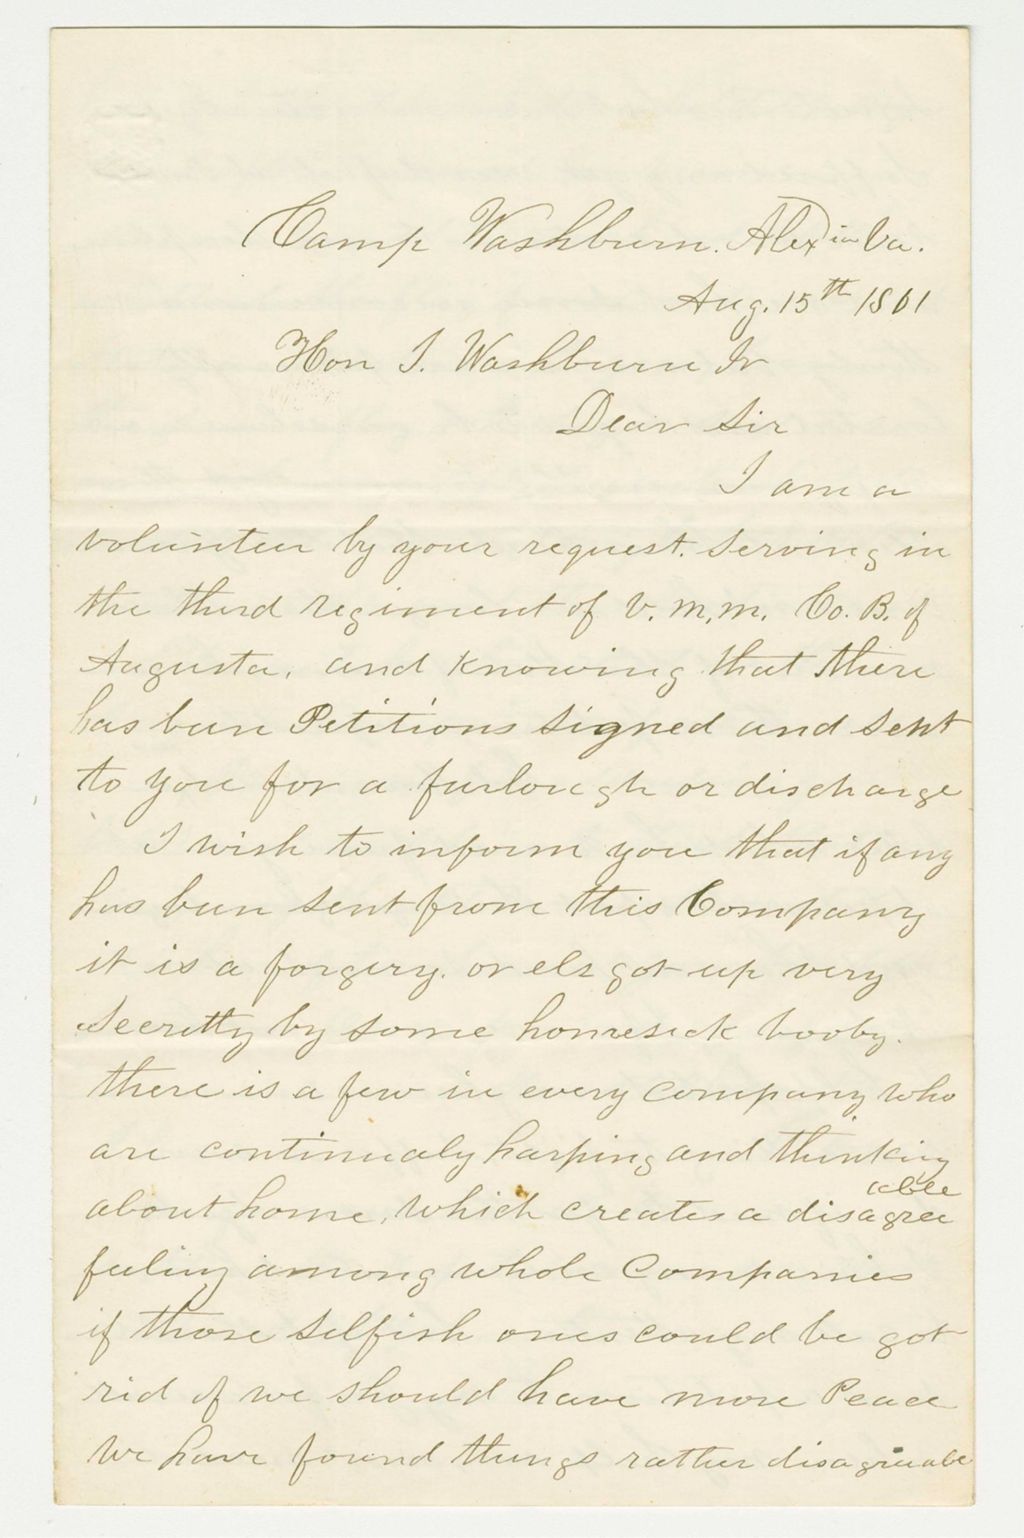 Camp Washburn. Alex in Va.
Aug. 15th 1861
Hon I. Washburn Jr
Dear Sir
I am a
volunteer by your request. serving in
the third regiment of V. M, M. Co. B. of
Augusta, and knowing that there
has been Petitions signed and sent
to you for a furlough or discharge
I wish to inform you that if any
has been sent from this Company
it is a forgery. or els got up very
Secrettly by some homesick booby.
there is a few in every company who
are continualy harping and thinking
about home, which creates a disagreeable
feeling among whole Companies
if those selfish ones could be got
rid of we should have more Peace
We have found things rather disagreeable